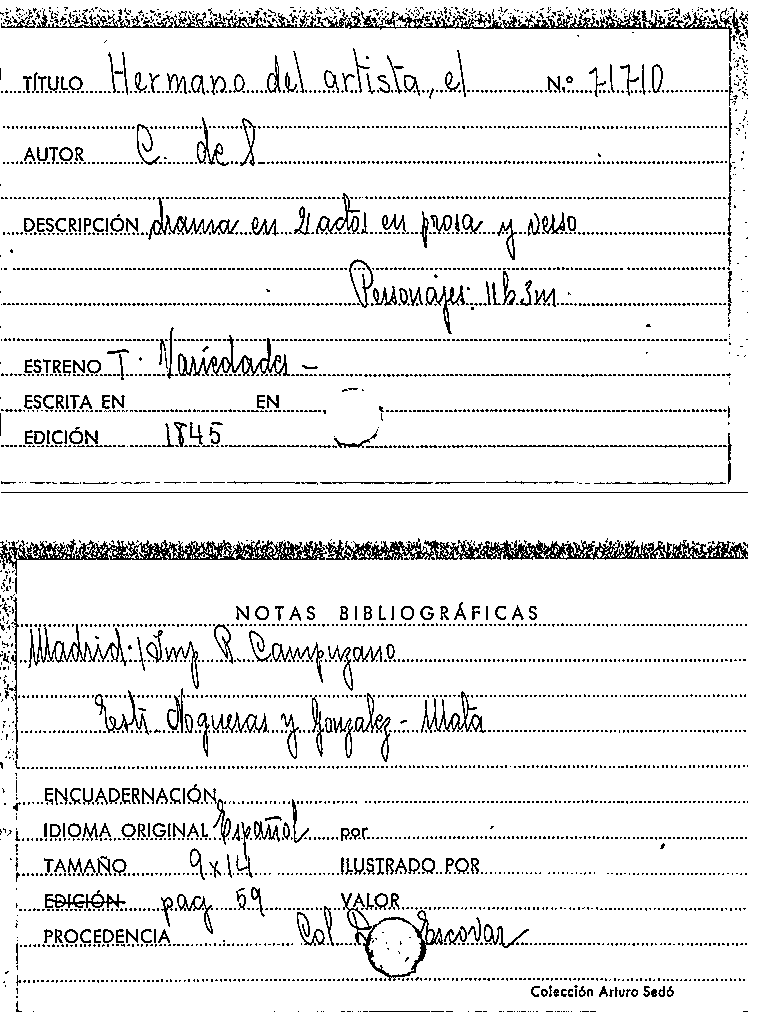 TÍTULO Hermano del artista, el N.º 71710
AUTOR C. de S
DESCRIPCIÓN drama en 2 actos en prosa y verso
Personajes: 11h 3m.
ESTRENO T. Variedades -
ESCRITA EN EN
EDICIÓN 1845
NOTAS BIBLIOGRÁFICAS
Madrid. Imp P. Campuzano
Estr. Nogueras y Gonzalez - Mata
ENCUADERNACIÓN
IDIOMA ORIGINAL Español por
TAMAÑO 9x14 ILUSTRADO POR
EDICIÓN pag 59 VALOR
PROCEDENCIA Col Escovar
Colección Arturo Sedó